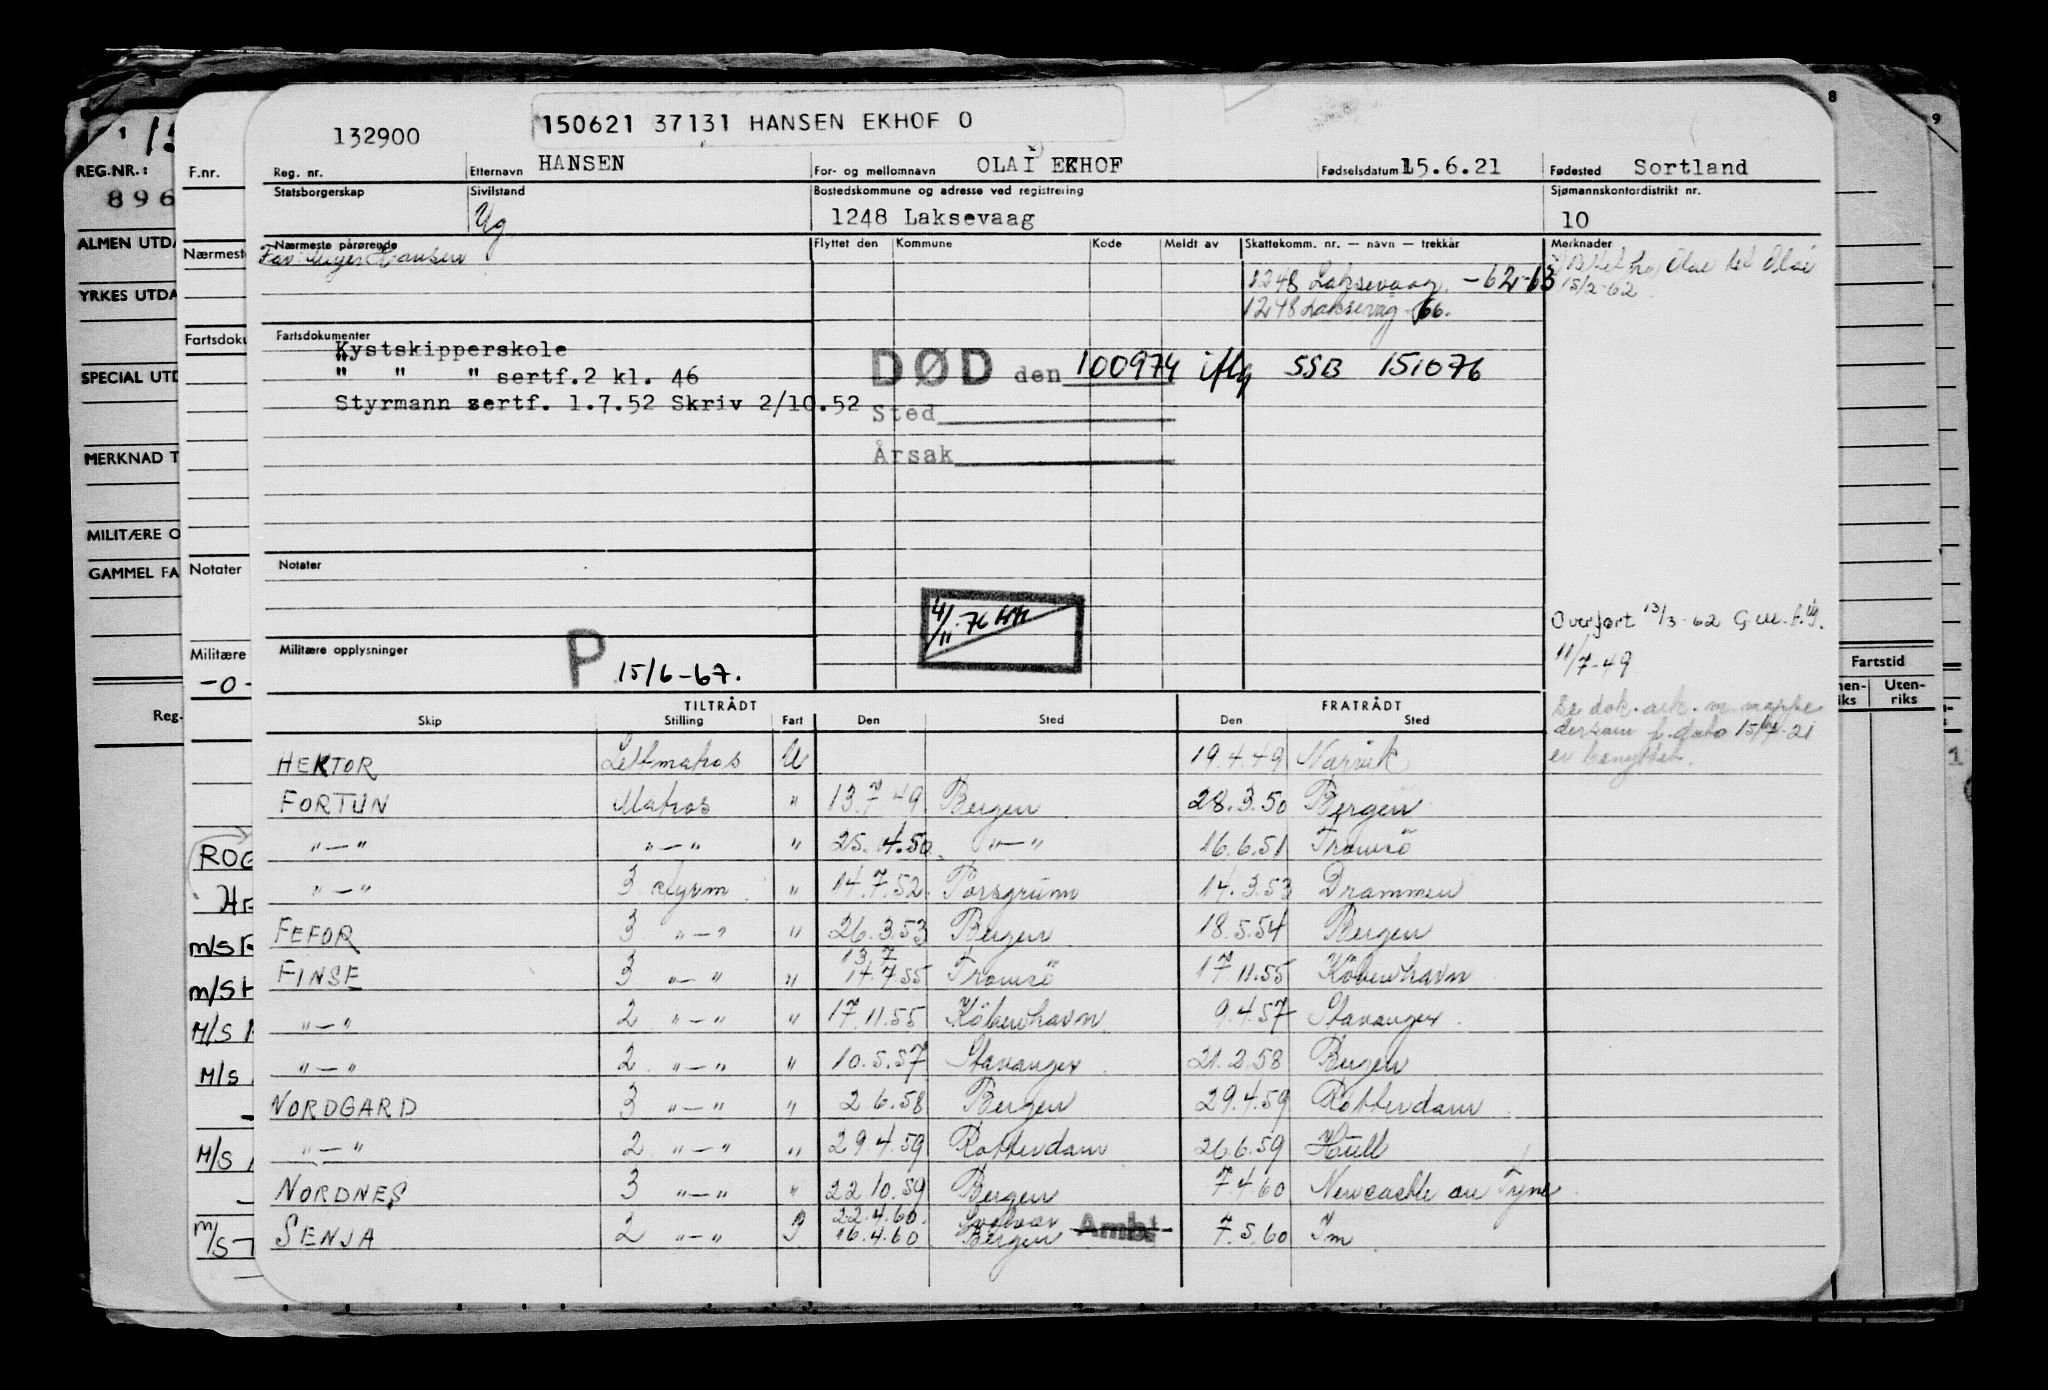 132900
150621 37131 HANSEN EKHOF O
Reg. nr.
Etternavn HANSEN
For- og mellomnavn OLAI EKHOF
Fødselsdatum 15.6.21
Fødested Sortland
Statsborgerskap
Sivilstand Ug
Bostedskommune og adresse ved registrering
1248 Laksevaag
Sjømannskontordistrikt nr.
10
Nærmeste pårørende
Hansen
Flyttet den Kommune Kode Meldt av Skattekomm. nr. — navn — trekkår
Merknader
1248 Laksevaag -62-63
15/2-62
1248 Laksevag -66.
Fartsdokumenter
Kystskipperskole
" " " sertf.2 kl. 46
Styrmann sertf. 1.7.52 Skriv 2/10.52
DØD den 100974 iflg SSB 151076
Sted
Årsak
Notater
4/11-76
Overført 13/3-62
11/7-49
Militære opplysninger
P 15/6-67.
TILTRÅDT FRATRÅDT
Skip Stilling Fart Den Sted Den Sted
HEKTOR Lettmatros U 19.4.49 Narvik
FORTUN Matros " 13.7.49 Bergen 28.3.50 Bergen
"—" "—" " 25.4.50 "—" 16.6.51 Tromsö
"—" 3 styrm " 14.7.52 Porsgrunn 14.3.53 Drammen
FEFOR 3 "—" " 26.3.53 Bergen 18.5.54 Bergen
FINSE 3 "—" " 13.7 14.7.55 Tromsö 17.11.55 Köbenhavn
"—" 2 "—" " 17.11.55 Köbenhavn 9.4.57 Stavanger
"—" 2 "—" " 10.5.57 Stavanger 21.2.58 Bergen
NORDGARD 3 "—" " 2.6.58 Bergen 29.4.59 Rotterdam
"—" 2 "—" " 29.4.59 Rotterdam 26.6.59 Hull
NORDNES 3 "—" " 22.10.59 Bergen 7.4.60 Newcastle on Tyne
22.4.60. Svolvær
SENJA 2 "—" 16.4.60 Bergen Ambt 7.5.60
REG.NR.:
896
ALMEN UTDA
YRKES UTDA
SPECIAL UTD
MERKNAD T
MILITÆRE O
GAMMEL FA
Reg.
F.nr.
Nærmeste
Fartsdoku
Notater
Militære
-0-
ROG
HE
m/s F
m/s H
M/S
M/S
M/S
m/s T
8
9
Fartstid
Uten-
riks